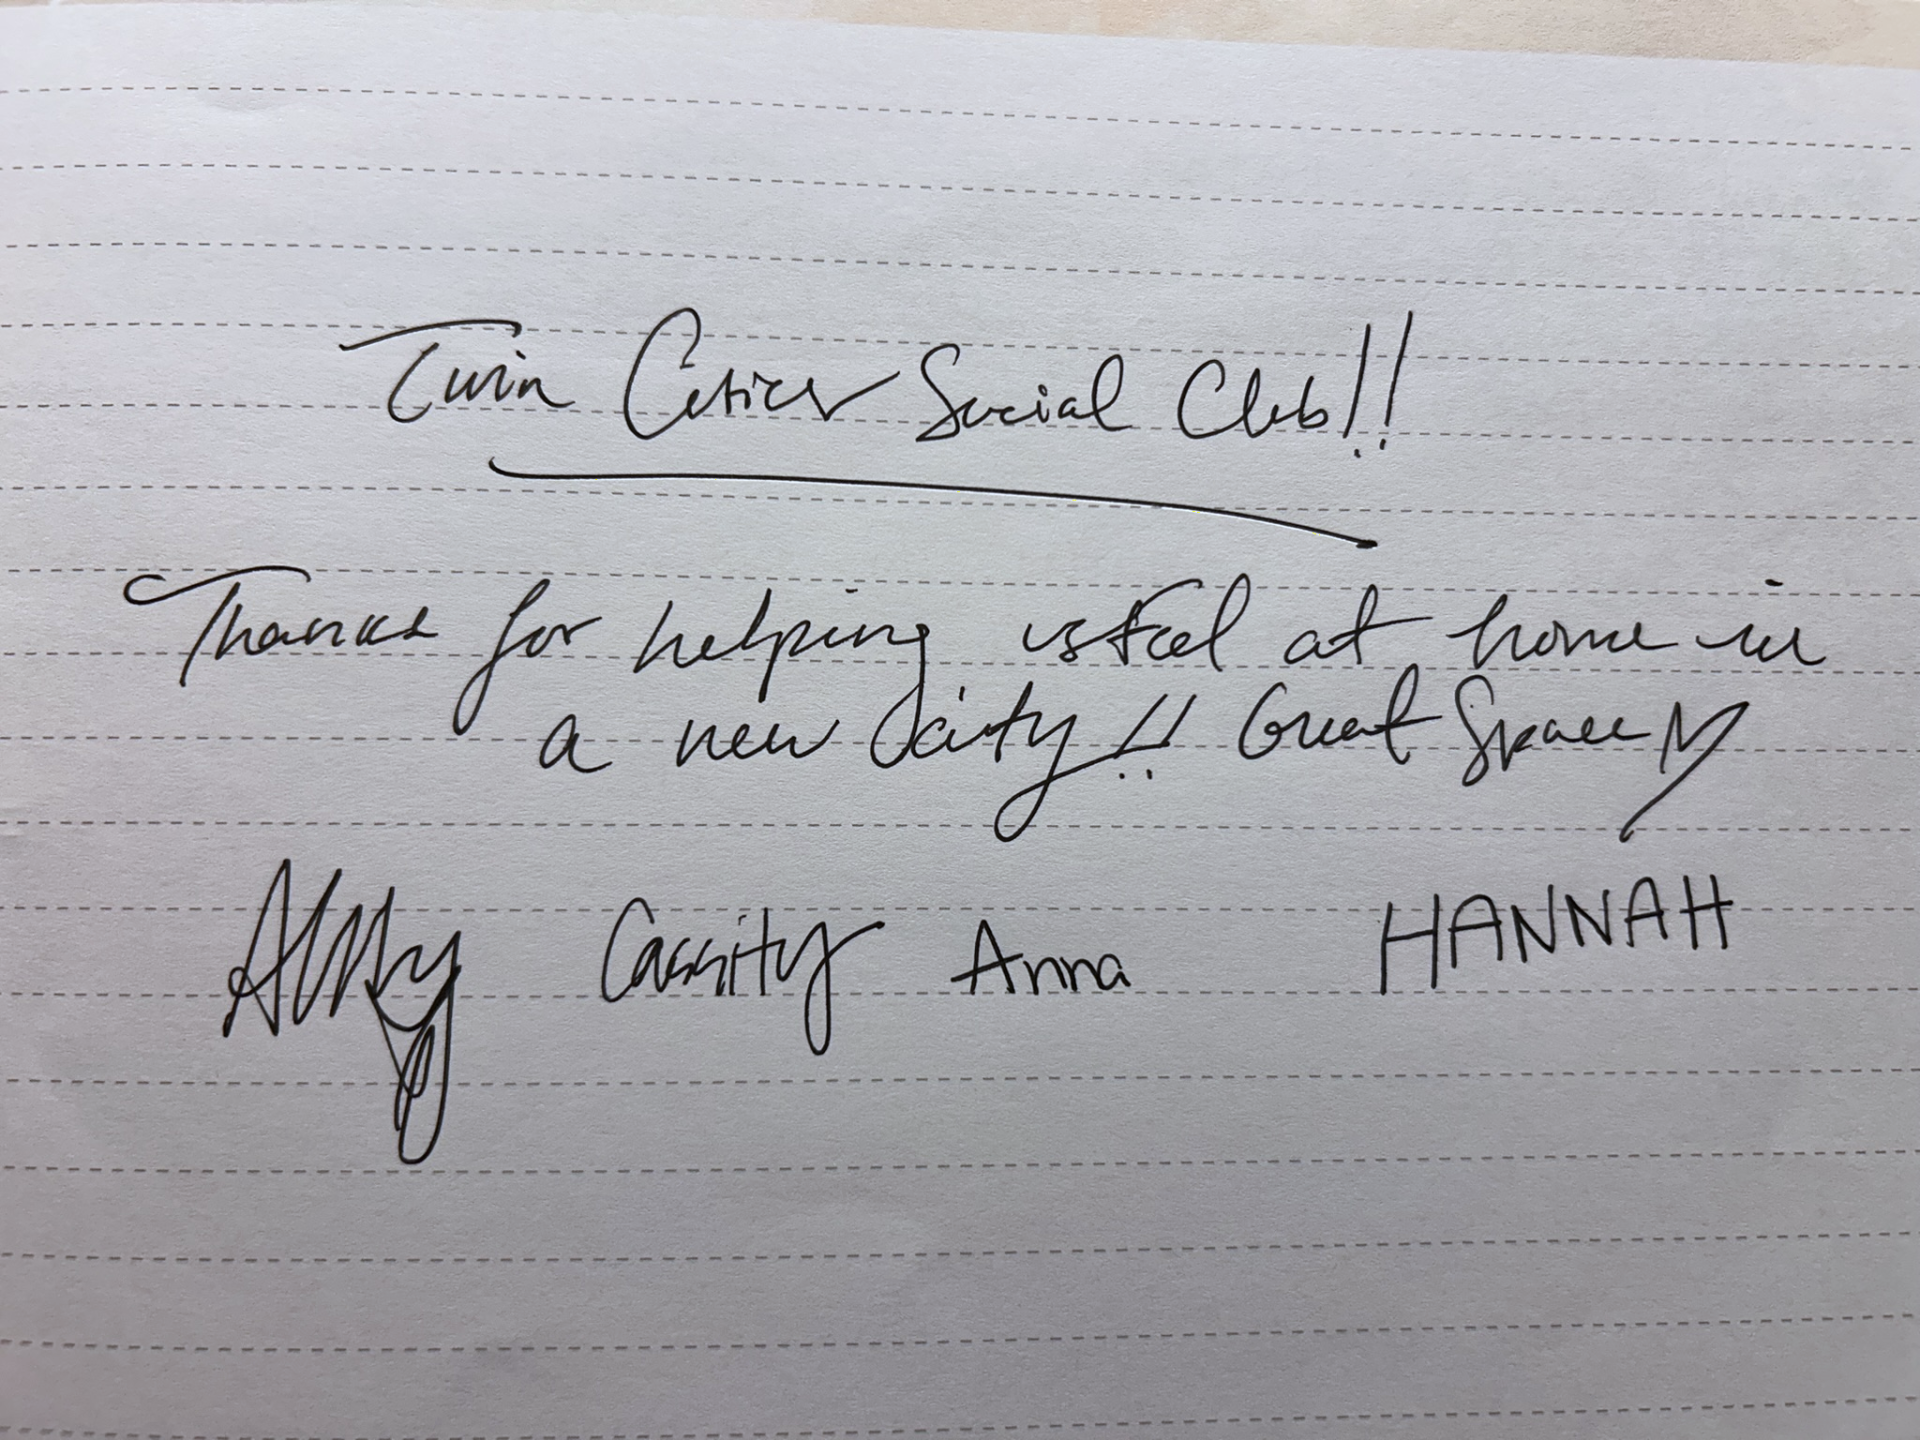 Twin Cities Social Club!!
Thanks for helping us feel at home in
a new city!! Great Space
Abby Cassity Anna HANNAH